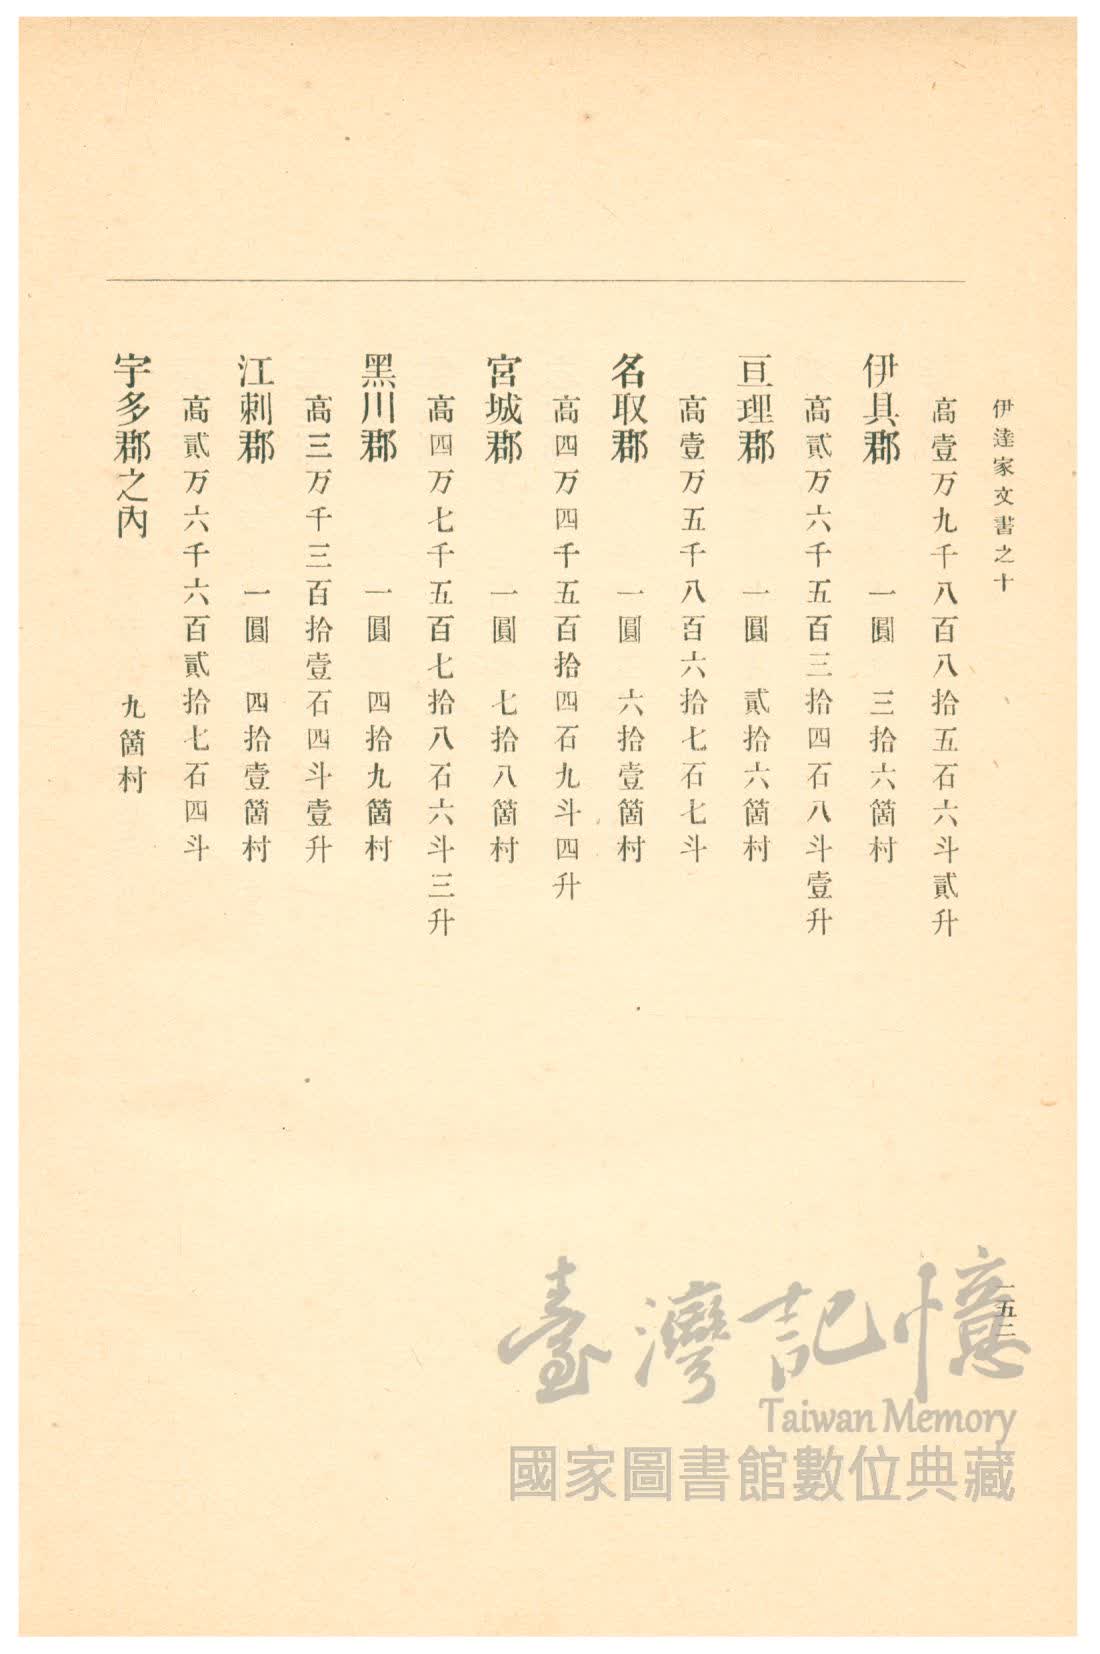 伊達家文書之十
高壹万九千八百八拾五石六斗貳升
伊具郡　一圓　三拾六箇村
高貳万六千五百三拾四石八斗壹升
亘理郡　一圓　貳拾六箇村
高壹万五千八百六拾七石七斗
名取郡　一圓　六拾壹箇村
高四万四千五百拾四石九斗四升
宮城郡　一圓　七拾八箇村
高四万七千五百七拾八石六斗三升
黑川郡　一圓　四拾九箇村
高三万千三百拾壹石四斗壹升
江刺郡　一圓　四拾壹箇村
高貳万六千六百貳拾七石四斗
宇多郡之內　九箇村
一五二
臺灣記憶
Taiwan Memory
國家圖書館數位典藏